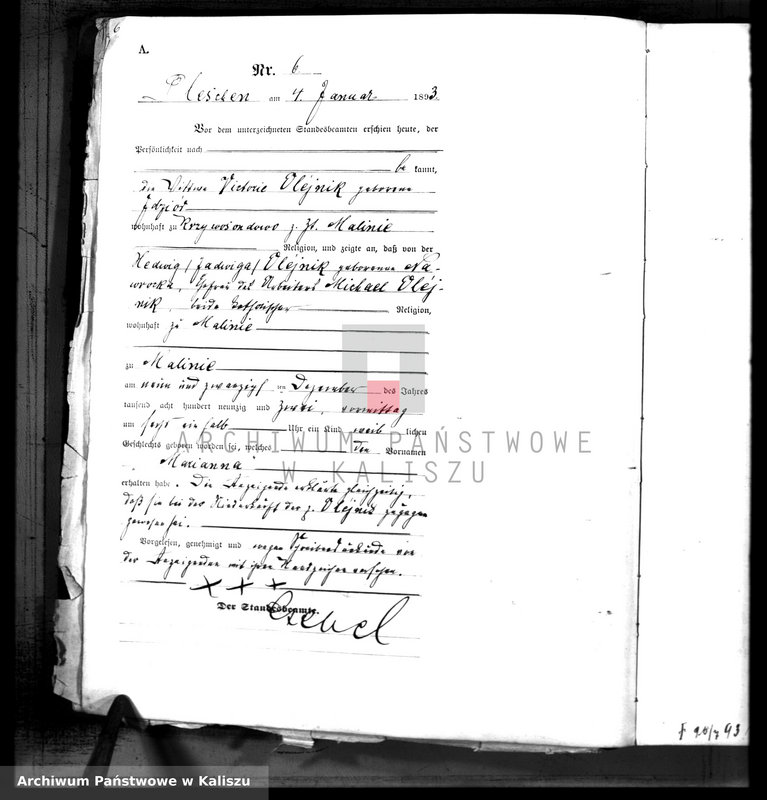 6
A.
Nr. 6
Pleschen am 4. Januar 1893.
Vor dem unterzeichneten Standesbeamten erschien heute, der
Persönlichkeit nach
be kannt,
die Wittwe Victorie Olejnik geborene
Idzior
wohnhaft zu Krzywosondowo z. Zt. Malinie
Religion, und zeigte an, daß von der
Hedwig (Jadwiga) Olejnik geborenen Na-
wrocka, Ehefrau des Arbeiters Michael Olej-
nik, beide katholischer Religion,
wohnhaft zu Malinie
zu Malinie
am neun und zwanzigsten Dezember des Jahres
tausend acht hundert neunzig und zwei, vormittag
um sechs ein halb Uhr ein Kind weib lichen
Geschlechts geboren worden sei, welches den Vornamen
Marianna
erhalten habe. Die Anzeigende erklärte gleichzeitig,
daß sie bei der Niederkunft der p. Olejnik zugegen
gewesen sei.
Vorgelesen, genehmigt und wegen Schreibensunkunde von
der Anzeigenden mit ihren Handzeichen versehen.
+ + +
Der Standesbeamte.
ARCHIWUM PAŃSTWOWE
W KALISZU
Archiwum Państwowe w Kaliszu